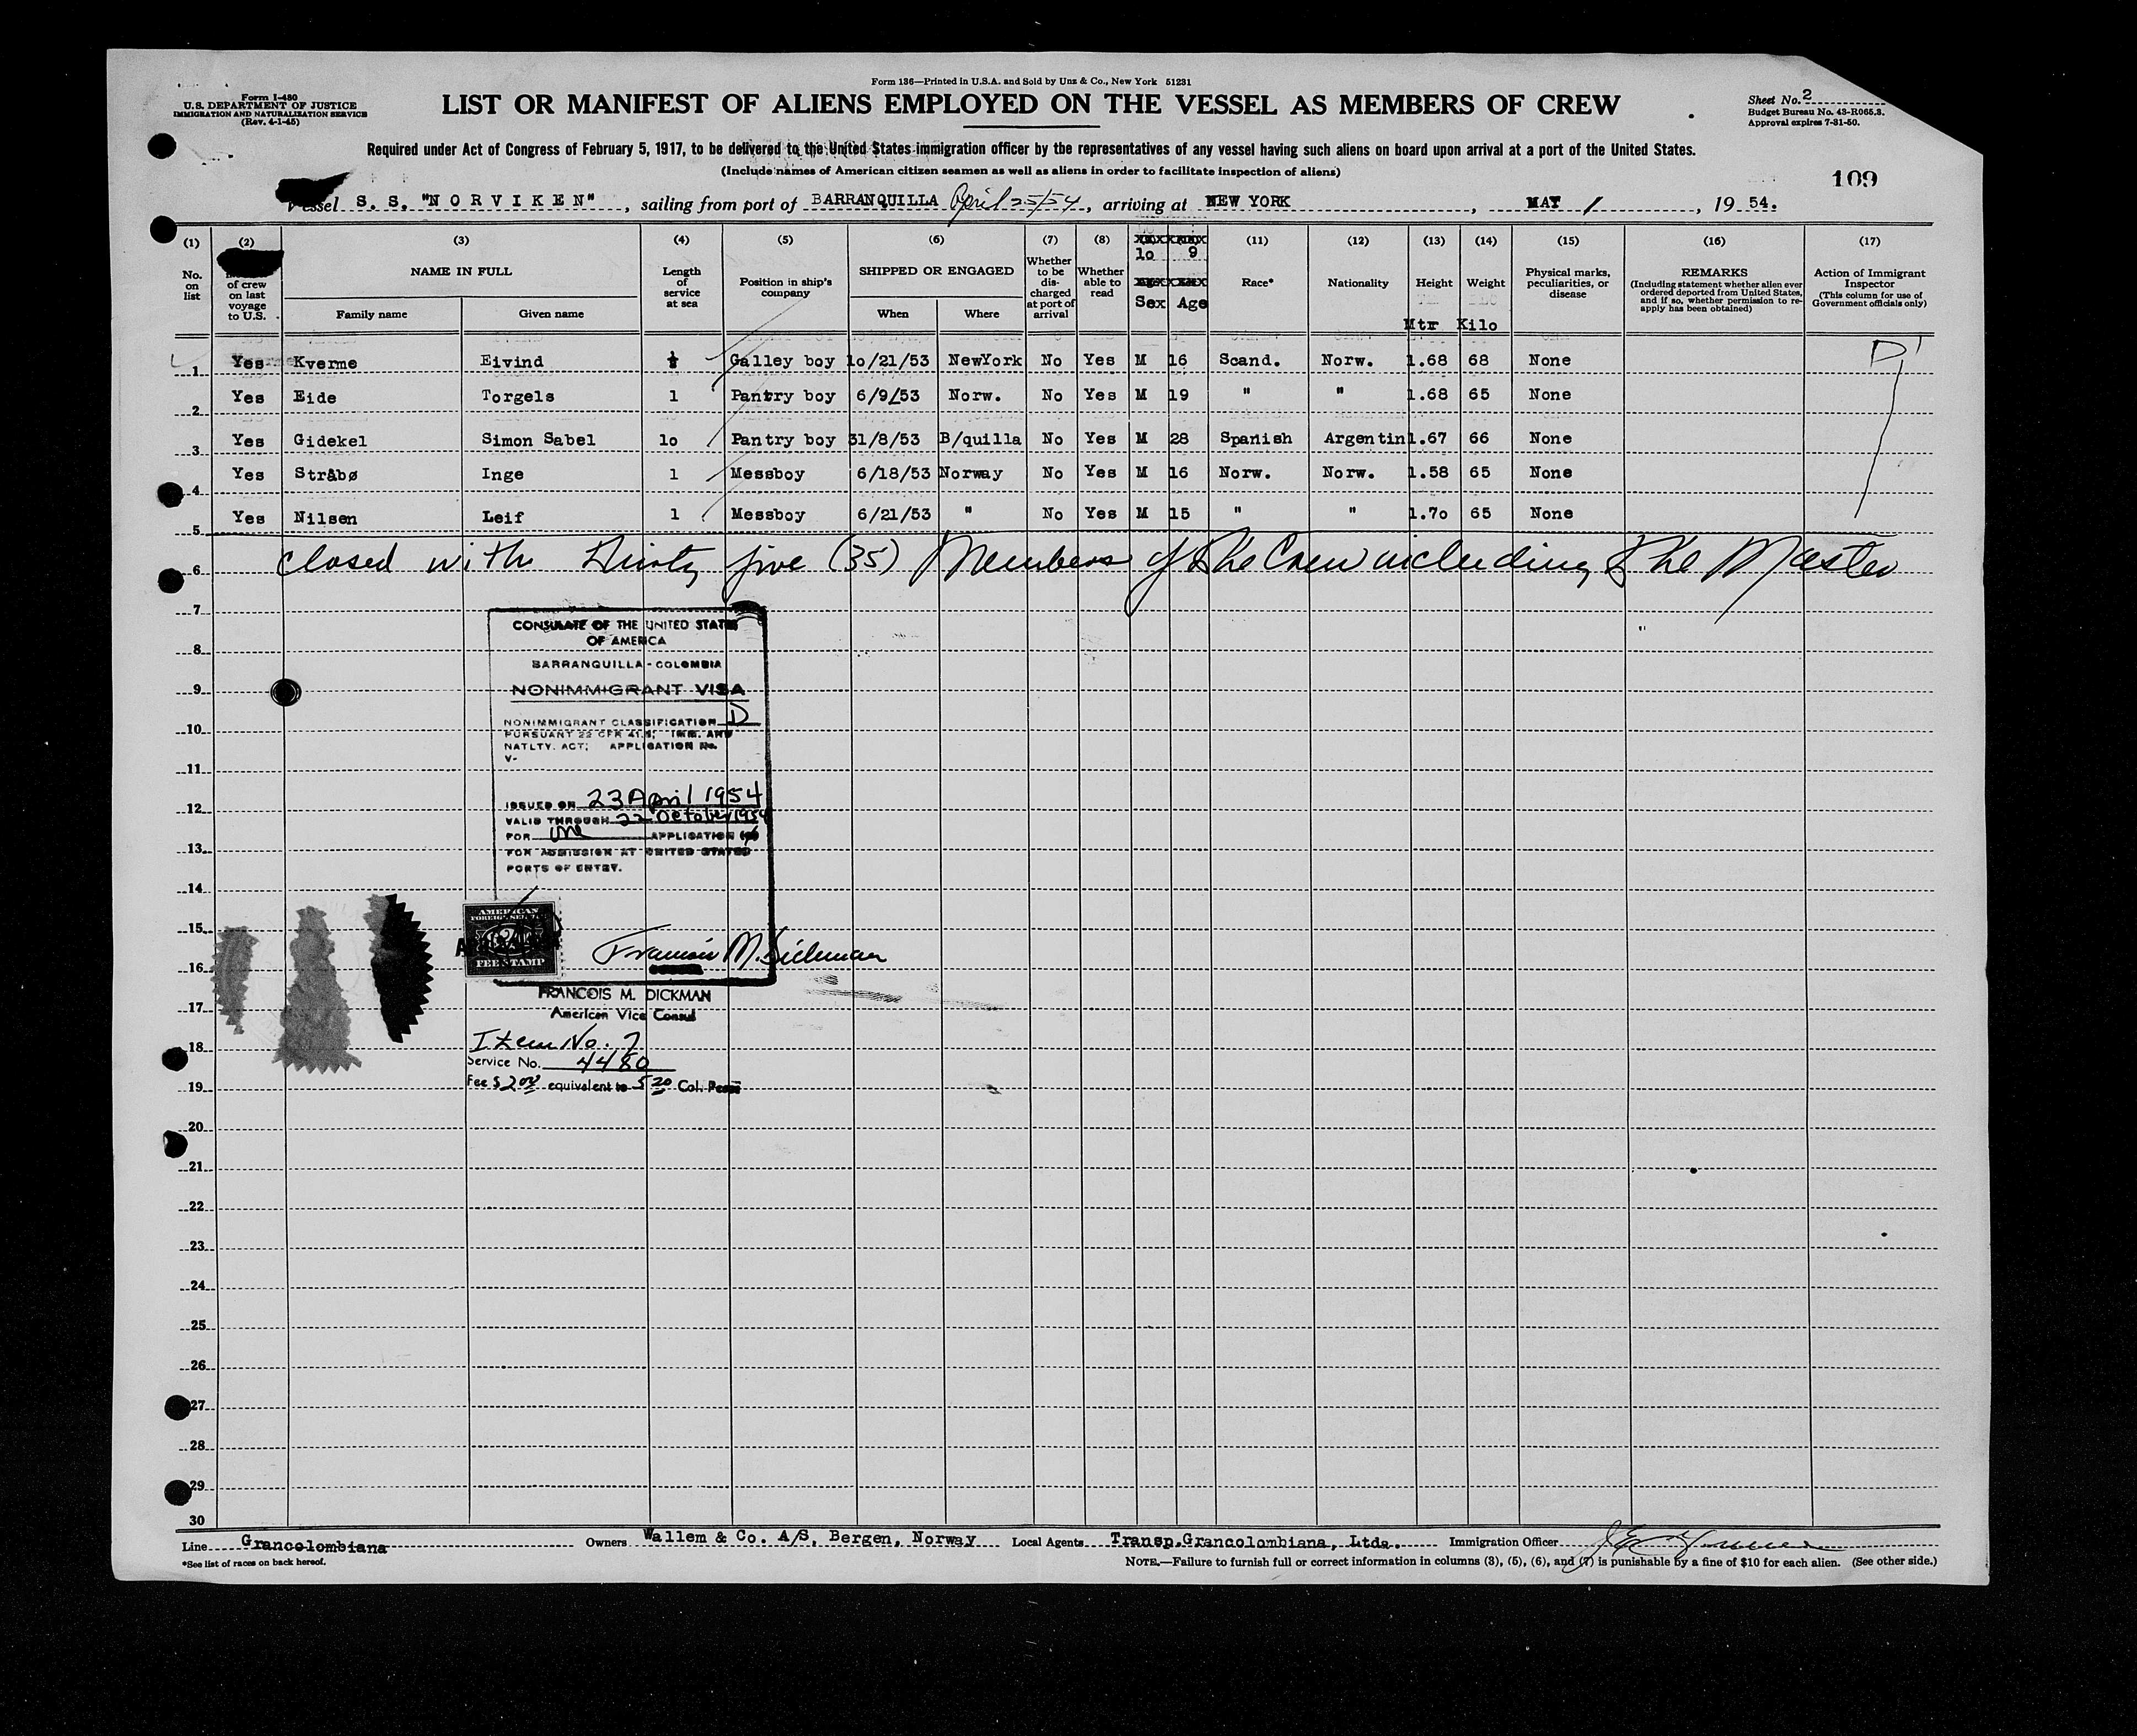 Form 136—Printed in U.S.A. and Sold by Unz & Co., New York 51231
Form I-480
U.S. DEPARTMENT OF JUSTICE
IMMIGRATION AND NATURALIZATION SERVICE
(Rev. 4-1-45)
LIST OR MANIFEST OF ALIENS EMPLOYED ON THE VESSEL AS MEMBERS OF CREW
Sheet No. 2
Budget Bureau No. 43-R065.3.
Approval expires 7-31-50.
Required under Act of Congress of February 5, 1917, to be delivered to the United States immigration officer by the representatives of any vessel having such aliens on board upon arrival at a port of the United States.
(Include names of American citizen seamen as well as aliens in order to facilitate inspection of aliens)
109
Vessel S. S. "N O R V I K E N", sailing from port of BARRANQUILLA April 25/54, arriving at NEW YORK, MAY 1, 19 54.
(1) (2) (3) (4) (5) (6) (7) (8) 10 9 (11) (12) (13) (14) (15) (16) (17)
No. on list
of crew on last voyage to U.S.
NAME IN FULL
Family name Given name
Length of service at sea
Position in ship's company
SHIPPED OR ENGAGED
When Where
Whether to be discharged at port of arrival
Whether able to read
Sex Age
Race*
Nationality
Height Mtr
Weight Kilo
Physical marks, peculiarities, or disease
REMARKS
(Including statement whether alien ever ordered deported from United States, and if so, whether permission to reapply has been obtained)
Action of Immigrant Inspector
(This column for use of Government officials only)
1 Yes Kverme Eivind Galley boy 10/21/53 NewYork No Yes M 16 Scand. Norw. 1.68 68 None D
2 Yes Eide Torgels 1 Pantry boy 6/9/53 Norw. No Yes M 19 " " 1.68 65 None
3 Yes Gidekel Simon Sabel 10 Pantry boy 31/8/53 B/quilla No Yes M 28 Spanish Argentin 1.67 66 None
4 Yes Stråbø Inge 1 Messboy 6/18/53 Norway No Yes M 16 Norw. Norw. 1.58 65 None
5 Yes Nilsen Leif 1 Messboy 6/21/53 " No Yes M 15 " " 1.70 65 None
6 closed with Thirty five (35) Members of the Crew including the Master
7
8
9
10
11
12
13
14
15
16
17
18
19
20
21
22
23
24
25
26
27
28
29
30
CONSULATE OF THE UNITED STATES
OF AMERICA
BARRANQUILLA - COLOMBIA
NONIMMIGRANT VISA
NONIMMIGRANT CLASSIFICATION D
PURSUANT 22 CFR 41.5; IMM. AND
NATLTY. ACT; APPLICATION No.
V-
ISSUED ON 23 April 1954
VALID THROUGH 22 October 1954
FOR one APPLICATION
FOR ADMISSION AT UNITED STATES
PORTS OF ENTRY.
AMERICAN
FOREIGN SERVICE
FEE STAMP
Francois M. Dickman
FRANCOIS M. DICKMAN
American Vice Consul
Item No. 7
Service No. 4480
Fee $ 2.00 equivalent to 5.20 Col. Pesos
Line Grancolombiana Owners Wallem & Co. A/S, Bergen, Norway Local Agents Transp. Grancolombiana, Ltda. Immigration Officer
*See list of races on back hereof.
NOTE.—Failure to furnish full or correct information in columns (3), (5), (6), and (7) is punishable by a fine of $10 for each alien. (See other side.)